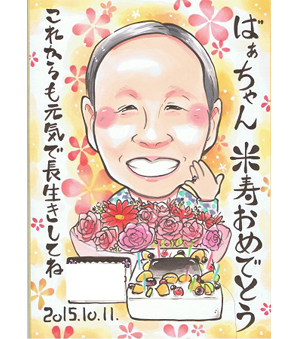 ばぁちゃん 米寿おめでとう
これからも元気で長生きしてね
2015.10.11.